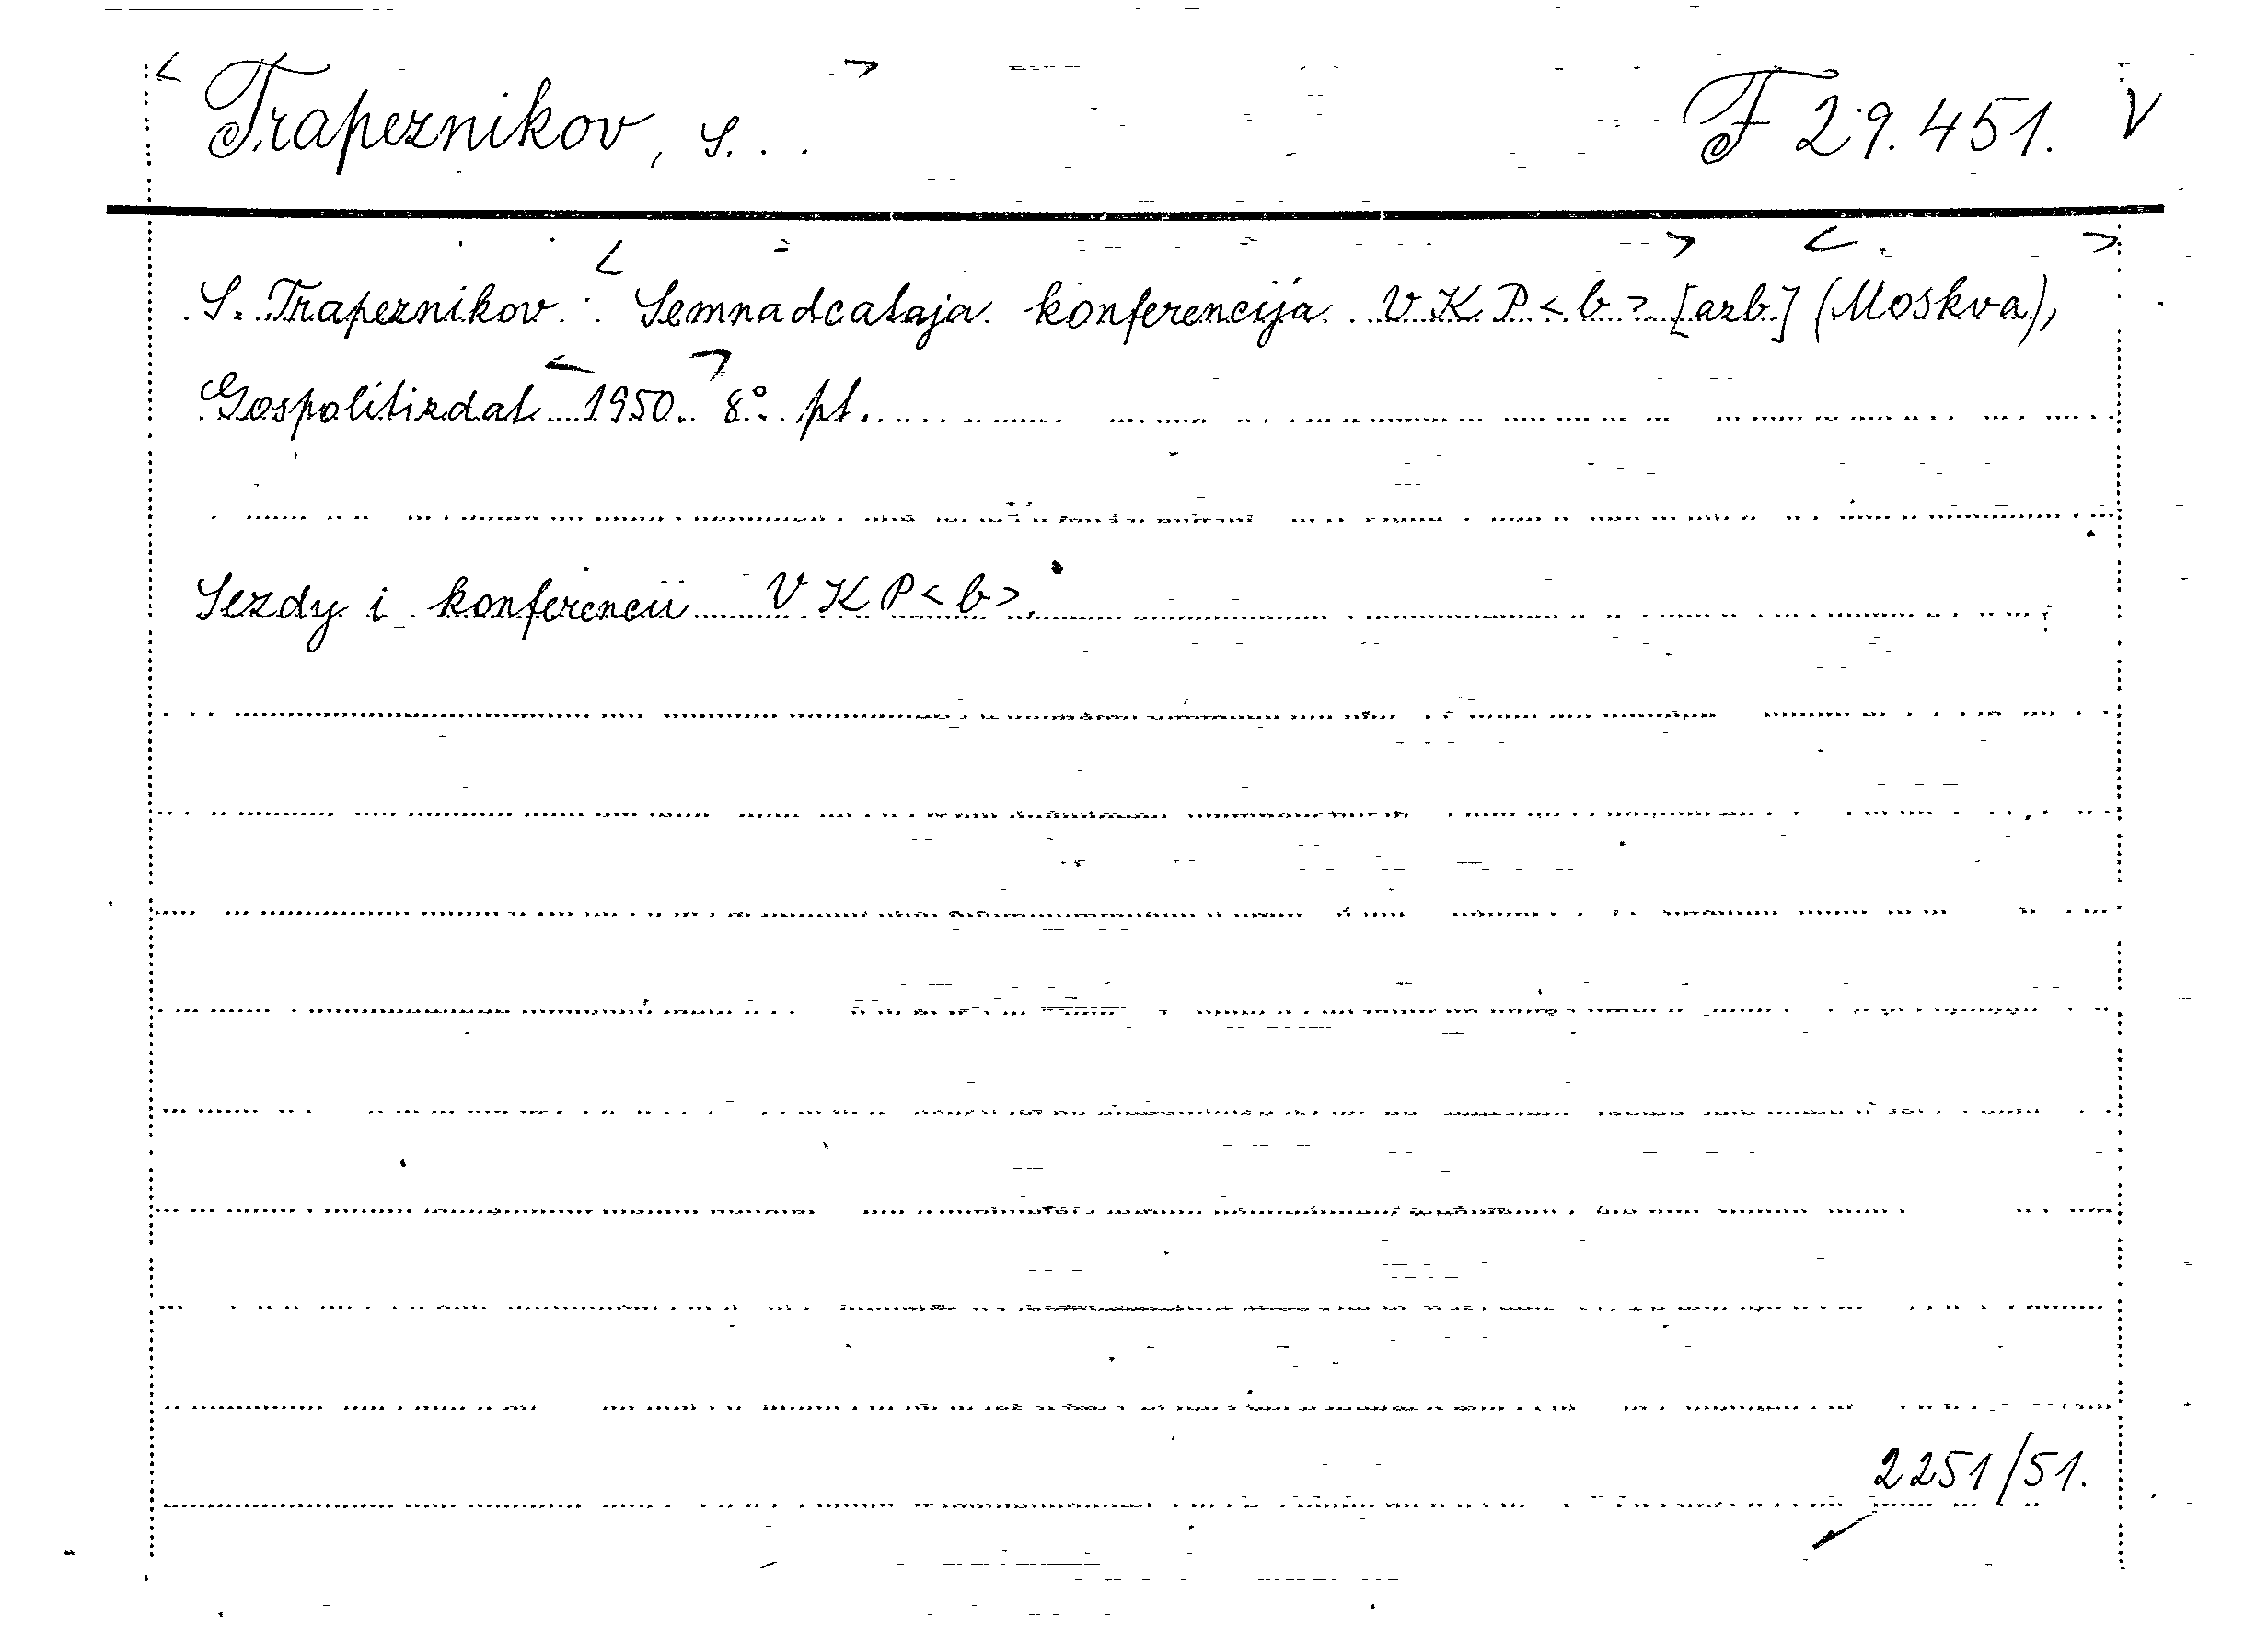 Trapeznikov, S. . . F 29.451. V
S. Trapeznikov: Semnadcataja konferencija VKP<b> [azb] (Moskva),
Gospolitizdat 1950. 8° pt.
Sezdy i konferencii VKP<b>.
2251/51.